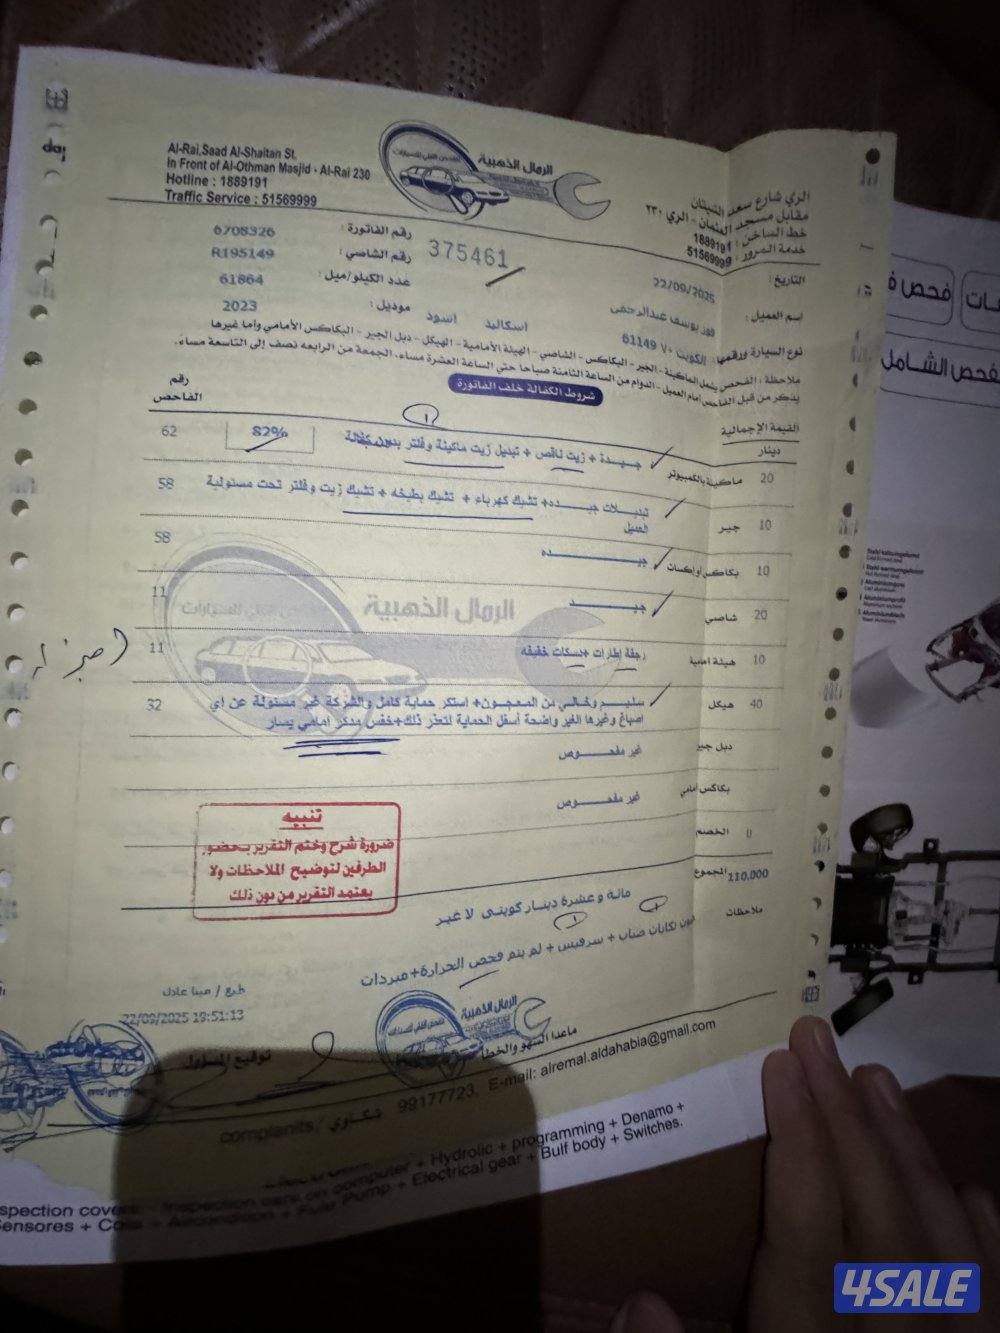 Al-Rai,Saad Al-Shaitan St,
In Front of Al-Othman Masjid - Al-Rai 230
Hotline : 1889191
Traffic Service : 51569999
الرمال الذهبية
الري شارع سعد الشيتان
مقابل مسجد العثمان - الري ٢٣٠
خط الساخن : 1889191
خدمة المرور : 51569999
رقم الفاتورة : 6708326
375461
رقم الشاصي : R195149
عدد الكيلو/ميل : 61864
موديل : 2023
التاريخ : 22/09/2025
اسم العميل : فوز يوسف عبدالرحمن
نوع السيارة ورقمها : الكويت ٧٠ 61149 اسكاليد اسود
ملاحظة : الفحص يشمل الماكينة - الجير - البكاكس - الشاصي - الهيئة الأمامية - الهيكل - دبل الجير - البكاكس الأمامي وأما غيرها
يذكر من قبل الفاحص امام العميل - الدوام من الساعة الثامنة صباحا حتى الساعة العشرة مساء، الجمعة من الرابعه نصف إلى التاسعة مساء.
شروط الكفالة خلف الفاتورة
القيمة الإجمالية
دينار
رقم الفاحص
20 ماكينة بالكمبيوتر جيدة + زيت ناقص + تبديل زيت ماكينة وفلتر بدون كفالة 82% 62
10 جير تبديلات جيده+ تشيك كهرباء + تشيك بطيخه + تشيك زيت وفلتر تحت مسئولية العميل 58
10 بكاكس أو إكسات جيده 58
20 شاصي جيد 11
10 هيئة امامية رجفة إطارات +دسكات خفيفه 11
40 هيكل سليم وخالي من المعجون+ استكر حماية كامل والشركة غير مسئولة عن اي
اصباغ وغيرها الغير واضحة أسفل الحماية لتعذر ذلك+خفس مدكر امامي يسار 32
دبل جير غير مفحوص
بكاكس امامي غير مفحوص
الخصم 0
المجموع 110.000
مائة وعشرة دينار كويتى لا غير
ملاحظات
تنبيه
ضرورة شرح وختم التقرير بحضور
الطرفين لتوضيح الملاحظات ولا
يعتمد التقرير من دون ذلك
سرفيس + لم يتم فحص الحرارة+مبردات
طبع / مينا عادل
22/09/2025 19:51:13
توقيع المسئول
الرمال الذهبية
ماعدا السهو والخطأ
complanits / شكاوي 99177723, E-mail: alremal.aldahabia@gmail.com
computer + Hydrolic + programming + Denamo +
Pump + Electrical gear + Bulf body + Switches.
الفحص الشامل
4SALE